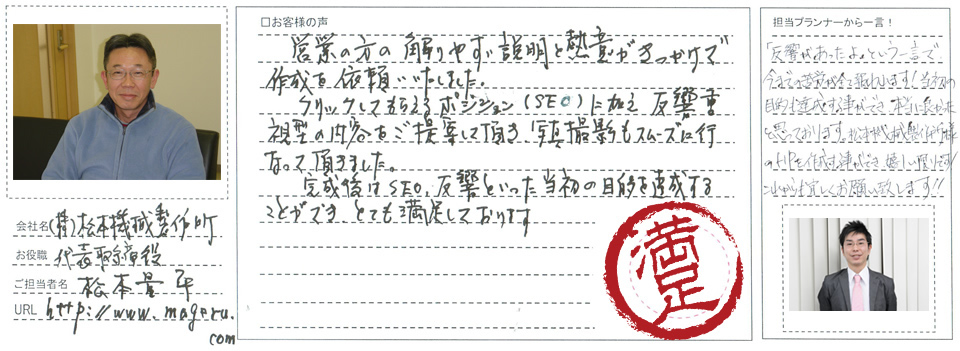 会社名 (有)松本機械製作所
お役職 代表取締役
ご担当者名 松本量平
URL http://www.mageru.
com
□お客様の声
営業の方の解りやすい説明と熱意がきっかけで
作成を依頼いたしました。
クリックしてもらえるポジション(SEO)に加え反響重
視型の内容をご提案して頂き、写真撮影もスムーズに行
なって頂きました。
完成後はSEO、反響といった当初の目的を達成する
ことができ、とても満足しております
満足
担当プランナーから一言!
「反響があったよ」という一言で
今までの苦労が全て報われます!当初の
目的を達成する事ができ、本当に良かった
と思っております。松本機械製作所様
のHPを作成する事ができ嬉しい限りです!
これからも宜しくお願い致します!!